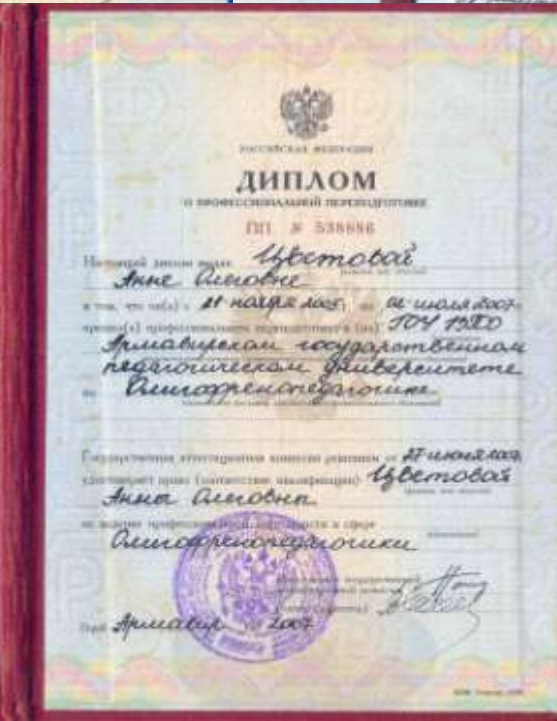 РОССИЙСКАЯ ФЕДЕРАЦИЯ
ДИПЛОМ
О ПРОФЕССИОНАЛЬНОЙ ПЕРЕПОДГОТОВКЕ
ПП № 538686
Настоящий диплом выдан Цветовой
Анне Олеговне
в том, что он(а) с 21 ноября 2005 по 02 июля 2007
прошел(а) профессиональную переподготовку в (на) ГОУ ВПО
Армавирском государственном
педагогическом университете
по Олигофренопедагогике
Государственная аттестационная комиссия решением от 27 июня 2007
удостоверяет право (соответствие квалификации) Цветовой
Анны Олеговны
на ведение профессиональной деятельности в сфере
Олигофренопедагогики
Город Армавир 2007